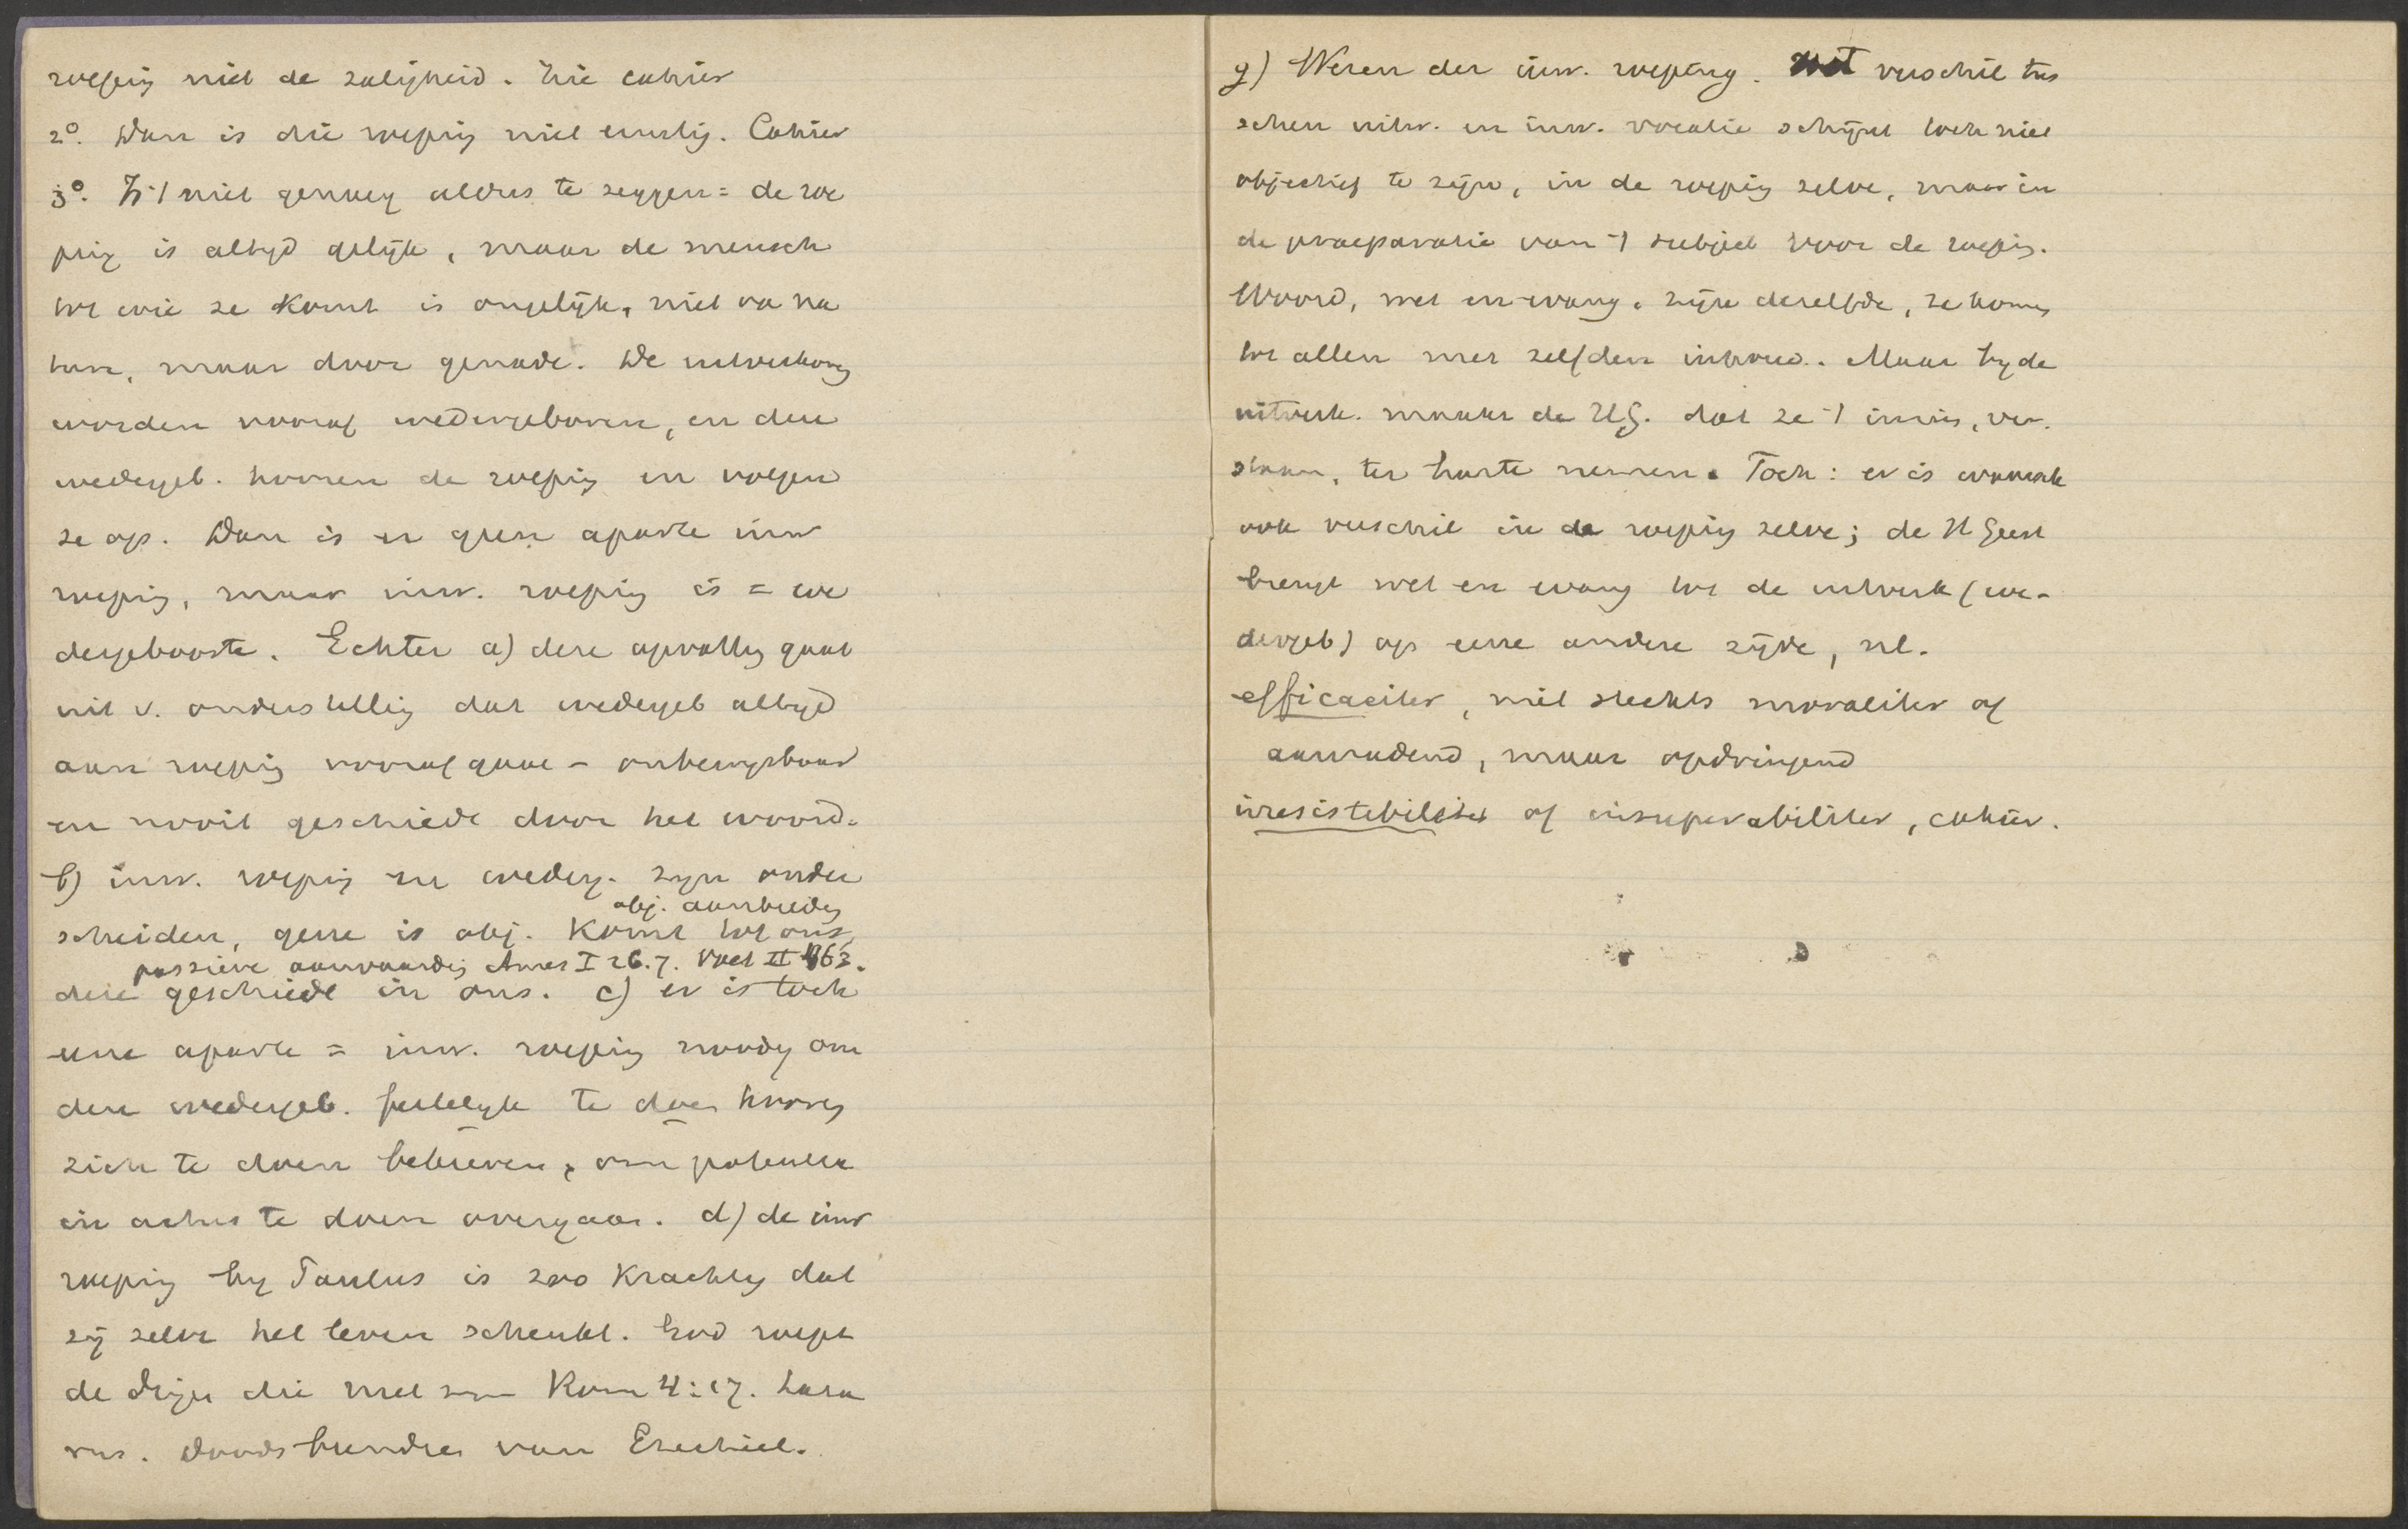 roeping niet de zaligheid. Zie cahier
2°. Dan is die roeping niet ernstig. Cahier
3°. Is 't niet genoeg aldus te zeggen = de roe
ping is altyd gelijk, maar de mensch
tot wie ze komt is ongelijk, niet va na
tuur, maar door genade. De uitverkoreng
worden vooraf wedergeboren, en deze
wedergeb. hooren de roeping en volgen
ze op. Dan is er geen aparte inw
roeping, maar inw. roeping is = we
dergeboorte. Echter a) deze opvatting gaat
uit v. onderstelling dat wedergeb altyd
aan roeping vooraf gaat - onbewysbaar
en nooit geschiedt door het woord.
b) inw. roeping en wederg. zyn onder
obj. aanbieding
scheiden, gene is obj. komt tot ons,
passieve aanvaarding Ames I 26.7. Voet II 463.
deze geschiedt in ons. c) er is toch
eene aparte = inw. roeping noodig om
den wedergeb. feitelyk te doen hooren
zich te doen bekeeren, om potentia
in actus te doen overgaan. d) de inw
roeping by Paulus is zoo krachtig dat
zij zelve het leven schenkt. God roept
de dingen die niet zyn Rom 4:17. Laza
rus. Doodsbeenderen van Ezechiel.
g) Wezen der inw. roeping. Het verschil tus
schen uitw. en inw. vocatie schijnt toch niet
objectief te zijn, in de roeping zelve, maar in
de praeparatie van 't subject voor de roeping.
Woord, wet en evang. zijn dezelfde, ze komen
tot allen met zelfden inhoud. Maar by de
uitverk. maakt de H.G. dat ze 't inzien, ver.
staan, ter harte nemen. Toch: er is wezenlijk
ook verschil in de roeping zelve; de H Geest
brengt wet en evang tot de uitverk (we-
dergeb) op eene andere zijde, nl.
efficaciter, niet slechts moraliter of
aanradend, maar opdringend
irresistebiliter of insuperabiliter, cahier.